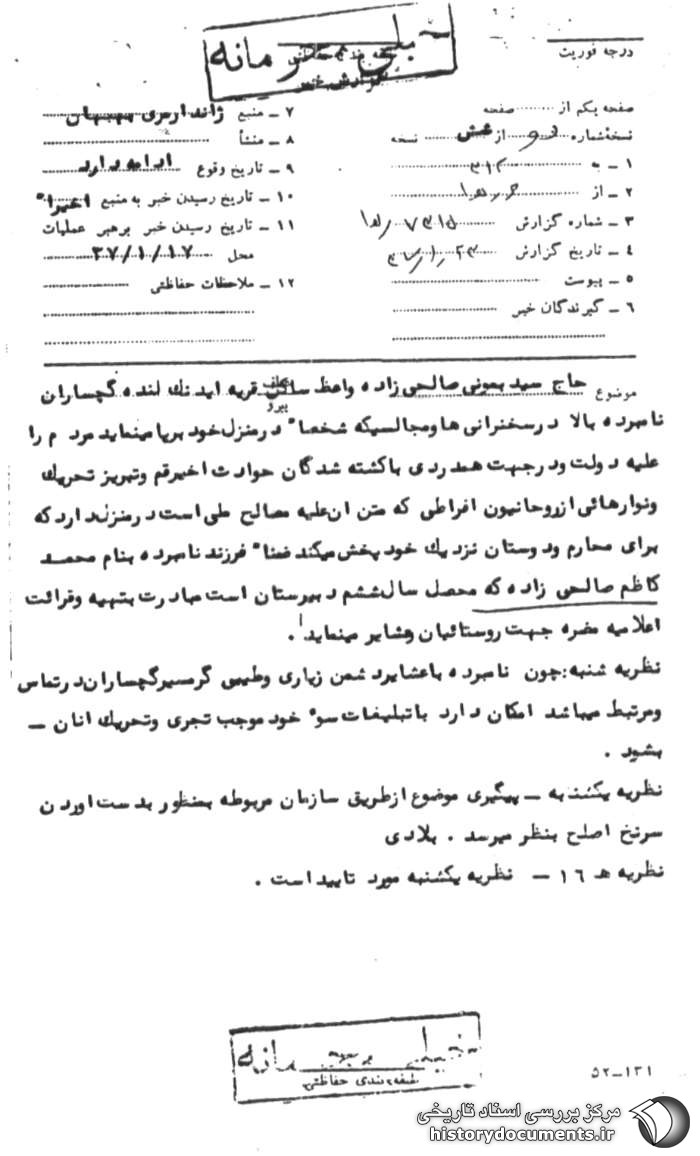 خیلی محرمانه
گزارش خبر
درجه فوریت
صفحه یکم از صفحه
نسخه شماره دو از شش نسخه
۱ ـ به ۳۱۲
۲ ـ از
۳ ـ شماره گزارش
۴ ـ تاریخ گزارش
۵ ـ پیوست
۶ ـ گیرندگان خبر
۷ ـ منبع ژاندارمری بهبهان
۸ ـ منشأ
۹ ـ تاریخ وقوع ادامه دارد
۱۰ ـ تاریخ رسیدن خبر به منبع اخیرا"
۱۱ ـ تاریخ رسیدن خبر برهبر عملیات
محل ۳۷/۱/۱۷
۱۲ ـ ملاحظات حفاظتی
موضوع حاج سید بمونی صالحی زاده واعظ ساکن قریه ایدنک لنده گچساران
پیرو
نامبرده بالا درسخنرانی ها ومجالسیکه شخصا" درمنزل خود برپا مینماید مردم را
علیه دولت ودرجهت همدردی با کشته شدگان حوادث اخیر قم وتبریز تحریک
ونوارهائی از روحانیون افراطی که متن ان علیه مصالح ملی است درمنزل دارد که
برای محارم ودوستان نزدیک خود پخش میکند ضمنا" فرزند نامبرده بنام محمد
کاظم صالحی زاده که محصل سال ششم دبیرستان است مبادرت بتهیه وقرائت
اعلامیه مضره جهت روستائیان وعشایر مینماید .
نظریه شنبه : چون نامبرده با عشایر دشمن زیاری وطیبی گرمسیر گچساران درتماس
ومرتبط میباشد امکان دارد با تبلیغات سو" خود موجب تجری وتحریک انان ـ
بشود .
نظریه یکشنبه ـ پیگیری موضوع از طریق سازمان مربوطه بمنظور بدست اوردن
سرنخ اصلح بنظر میرسد . بلادی
نظریه هـ ۱۶ ـ نظریه یکشنبه مورد تایید است .
خیلی محرمانه
طبقه بندی حفاظتی
۵۲ـ۱۳۱
مرکز بررسی اسناد تاریخی
historydocuments.ir